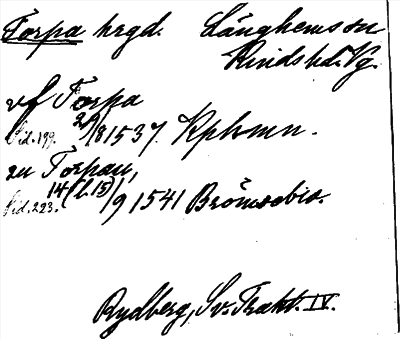 Torpa hrgd. Länghems sn
Kinds hd. Vg.
uf Torpa
Sid. 199. 29/8 1537. Kphmn.
zu Torpau,
Sid. 223. 14 (l. 15)/9 1541 Brömsebro.
Rydberg, Sv. Trakt. IV.